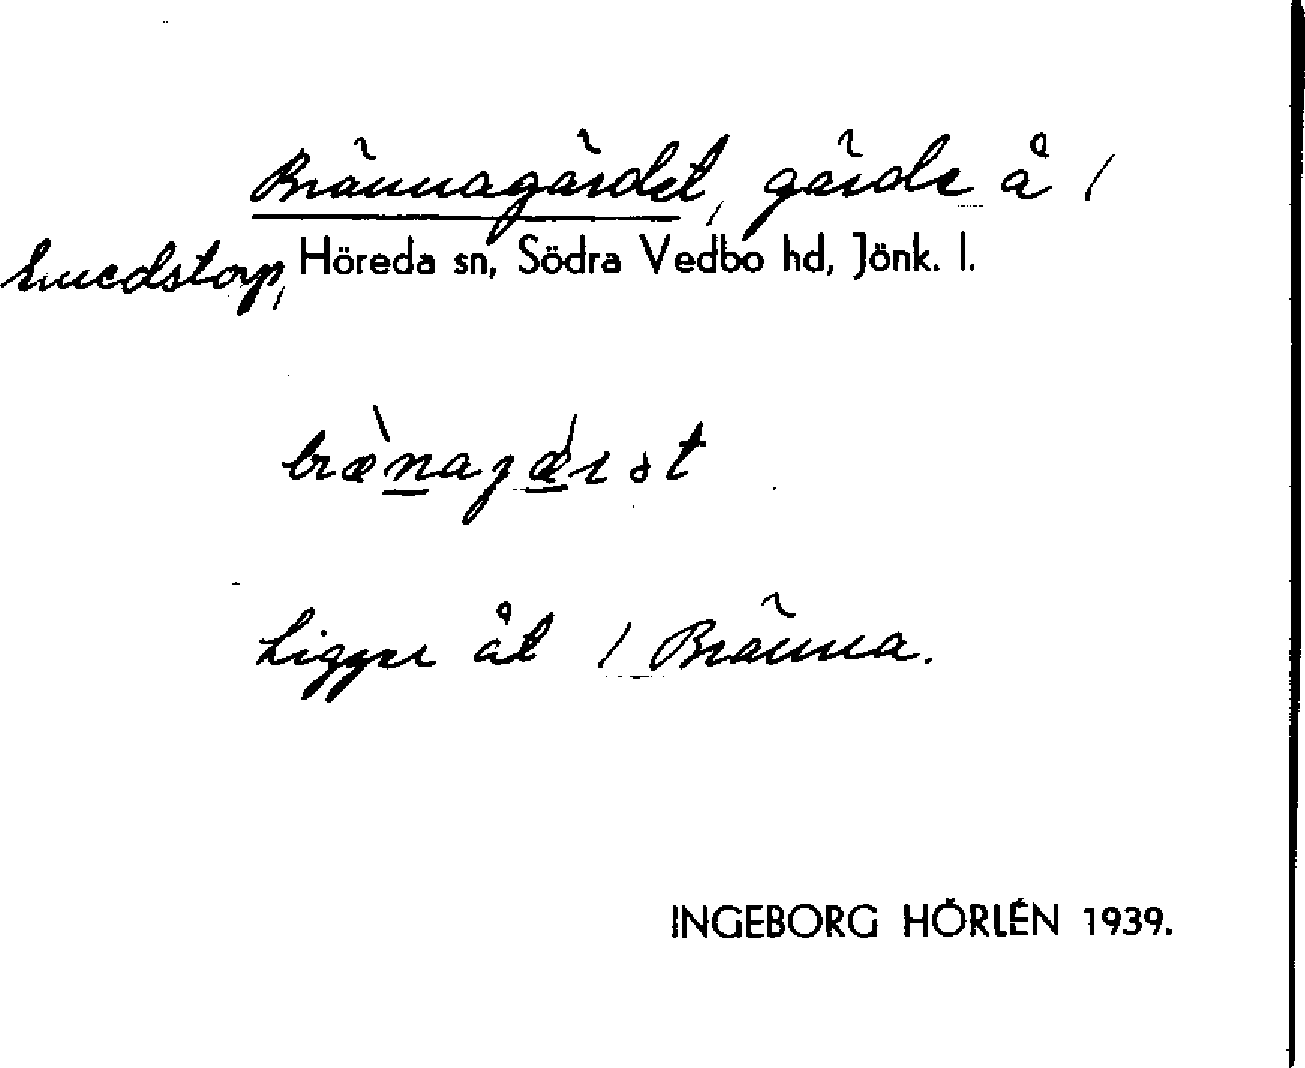 Brännagärdet, gärde å /
Smedstorp, Höreda sn, Södra Vedbo hd, Jönk. l.
Ligger åt / Bränna.
INGEBORG HÖRLÉN 1939.